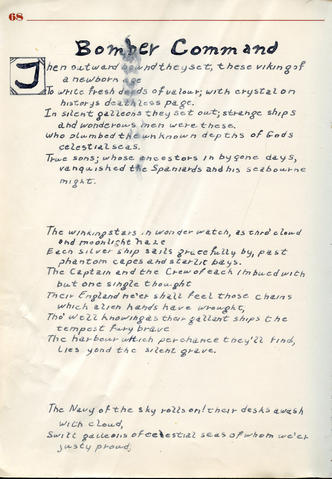 68
Bomber Command
Then outward bound they set, these viking of
a newborn age
To write fresh deeds of valour; with crystal on
historys deathless page.
In silent galleons they set out; strange ships
and wonderous men were these.
Who plumbed the unknown depths of Gods
celestial seas.
True sons; whose ancestors in bygone days,
vanquished the Spaniards and his seabourne
might.
The winking stars in wonder watch, as thro' cloud
and moonlight haze
Each silver ship sails gracefully by, past
phantom capes and starlit bays.
The Captain and the Crew of each imbued with
but one single thought
Their England ne'er shall feel those chains
which alien hands have wrought,
Tho' well knowing as their gallant ships the
tempest fury brave
The harbour which perchance they'll find,
lies yond the silent grave.
The Navy of the sky rolls on! their desks awash
with cloud,
Swift galleons of celestial seas of whom we'er
justy proud,